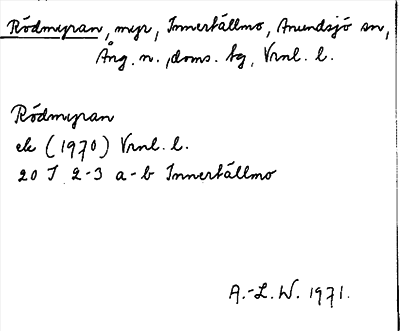 Rödmyran, myr, Innertällmo, Anundsjö sn,
Ång. n., doms. tg, Vrnl. l.
Rödmyran
ek (1970) Vrnl. l.
20 I 2-3 a-b Innertällmo
A.-L. W. 1971.